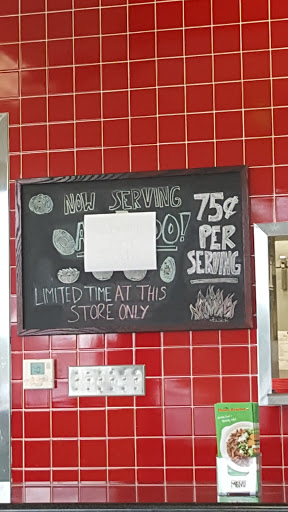 NOW SERVING
75¢
PER
SERVING
LIMITED TIME AT THIS
STORE ONLY
MENU